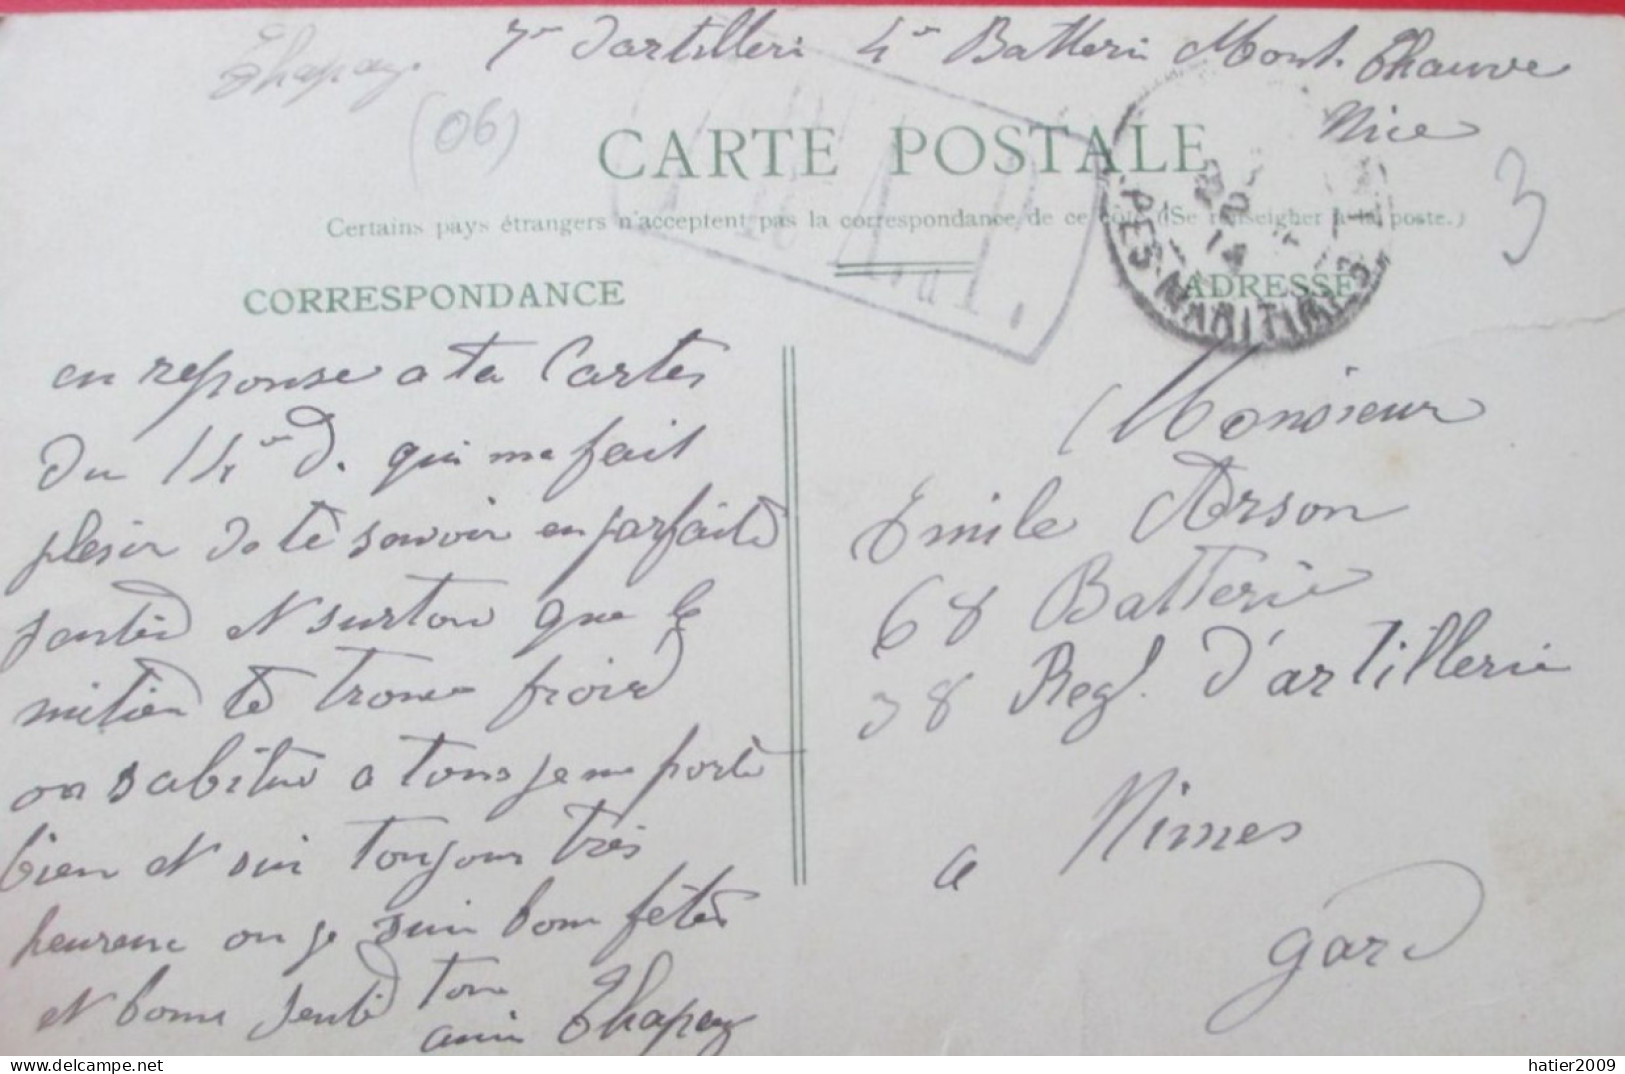 Thapay. 7e Dartilleri 4e Batteri Mont. Chauve
Nice
(06)
3
CARTE POSTALE
Certains pays étrangers n'acceptent pas la correspondance de ce côté (Se renseigner à la poste.)
CORRESPONDANCE
ADRESSE
PES-MARITIMES
en reponse a ta Cartes
Du 14e d. qui me fait
plesir de te savoir en parfaite
santée et surtou que le
mitien te trouve froid
on sabitue a tous je me porte
bien et sui toujour très
heureux ou je suis bonne fêtes
et bonne senté ton
ami Thapay
Monsieur
Emile Arson
68 Batterie
38 Reg. d'artillerie
a Nimes
gard
hatier2009